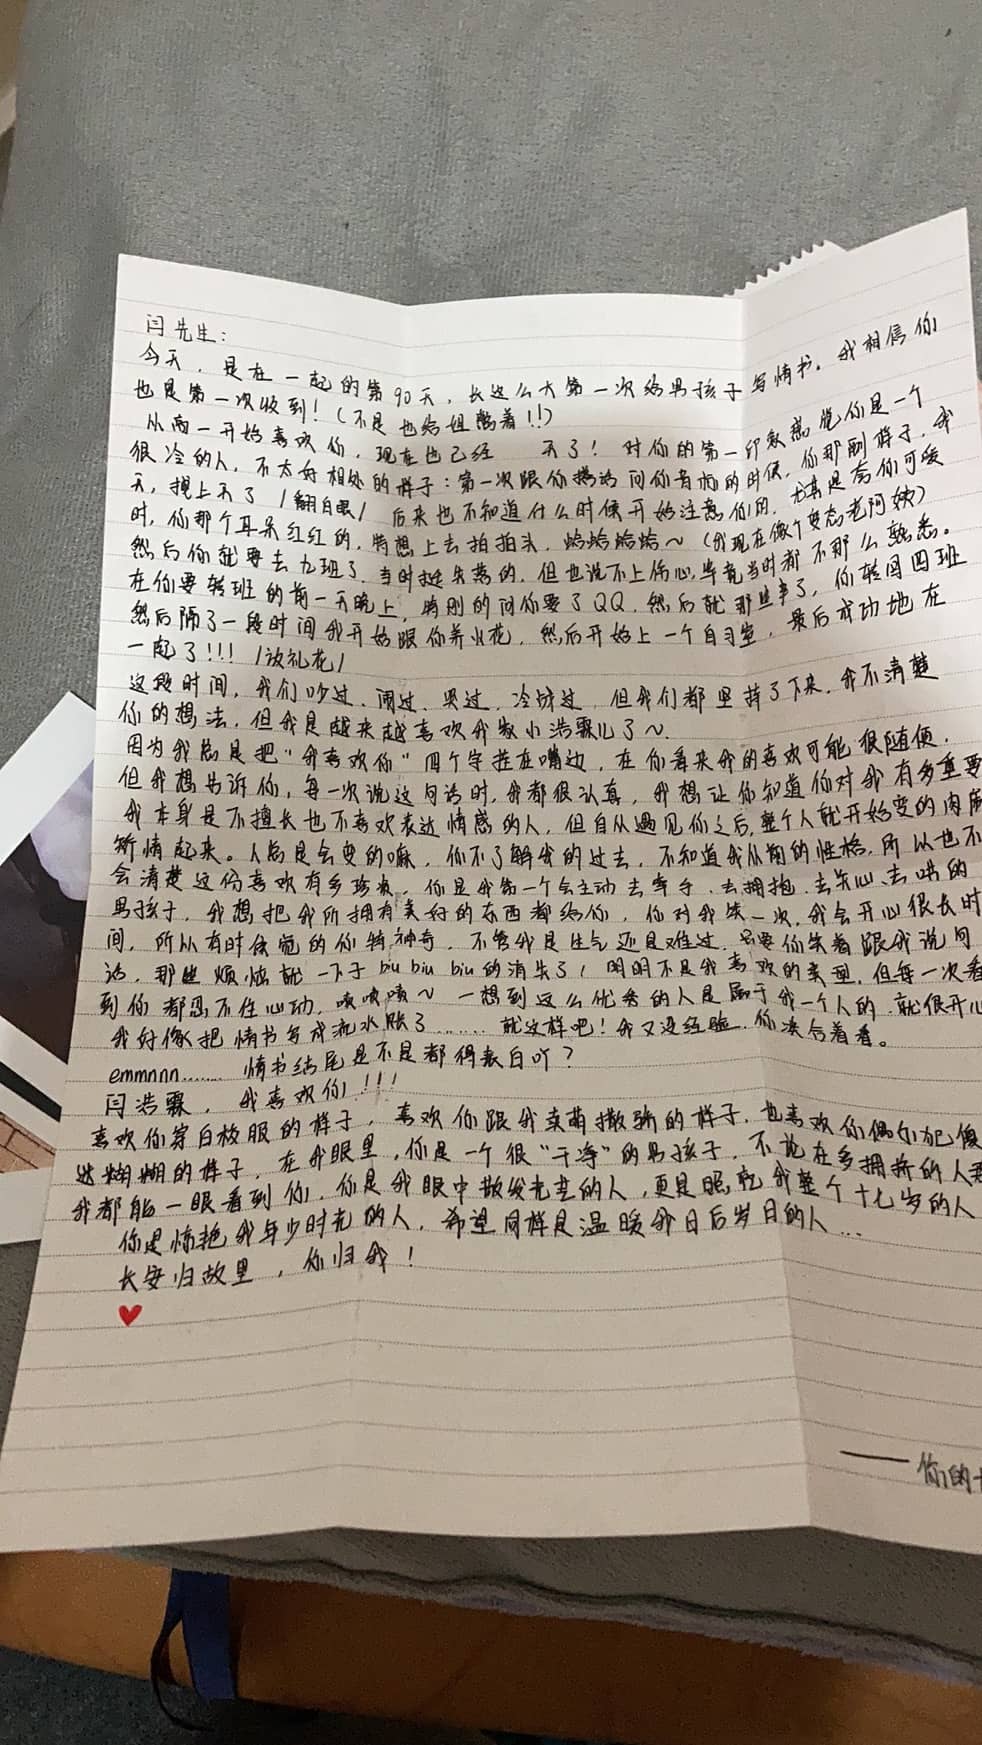 闫先生:
今天，是在一起的第90天，长这么大第一次给男孩子写情书。我相信你
也是第一次收到！(不是也给姐憋着！！)
从高一开始喜欢你，现在也已经 天了！对你的第一印象感觉你是一个
很冷的人，不太好相处的样子：第一次跟你搭话问你音响的时候，你那副样子，我
天，拽上天了/翻白眼/后来也不知道什么时候开始注意你的，尤其是夸你可爱
时，你那个耳朵红红的，特想上去拍拍头，哈哈哈哈~(我现在像个变态老阿姨)
然后你就要去九班了，当时挺失落的，但也说不上伤心，毕竟当时都不那么熟悉。
在你要转班的前一天晚上，特刚的问你要了QQ，然后就那些事了，你转回四班
然后隔了一段时间我开始跟你养火花，然后开始上一个自习室，最后成功地在
一起了!!!/放礼花/
这段时间，我们吵过、闹过、哭过、冷战过，但我们都坚持了下来，我不清楚
你的想法，但我是越来越喜欢我家小浩霖儿了~
因为我总是把“我喜欢你”四个字挂在嘴边，在你看来我的喜欢可能很随便，
但我想告诉你，每一次说这句话时，我都很认真，我想让你知道你对我有多重要
我本身是不擅长也不喜欢表达情感的人，但自从遇见你之后，整个人就开始变的肉麻
矫情起来。人总是会变的嘛，你不了解我的过去，不知道我从前的性格，所以也不
会清楚这份喜欢有多珍贵，你是我第一个会主动去牵手、去拥抱、去关心、去哄的
男孩子，我想把我所拥有美好的东西都给你，你对我笑一次，我会开心很长时
间，所以有时候觉的你特神奇，不管我是生气还是难过，只要你笑着跟我说句
话，那些烦恼就一下子biu biu biu的消失了！明明不是我喜欢的类型，但每一次看
到你都忍不住心动，啧啧啧~一想到这么优秀的人是属于我一个人的，就很开心
我好像把情书写成流水账了........就这样吧！我又没经验，你凑合着看。
emmnnn........情书结尾是不是都得表白吖？
闫浩霖，我喜欢你!!!
喜欢你穿白校服的样子，喜欢你跟我卖萌撒娇的样子，也喜欢你偶尔犯傻
迷糊糊的样子，在我眼里，你是一个很“干净”的男孩子，不论在多拥挤的人
我都能一眼看到你，你是我眼中散发光芒的人，更是照亮我整个十七岁的人
你是惊艳我年少时光的人，希望同样是温暖我日后岁月的人...
长安归故里，你归我！
——你的